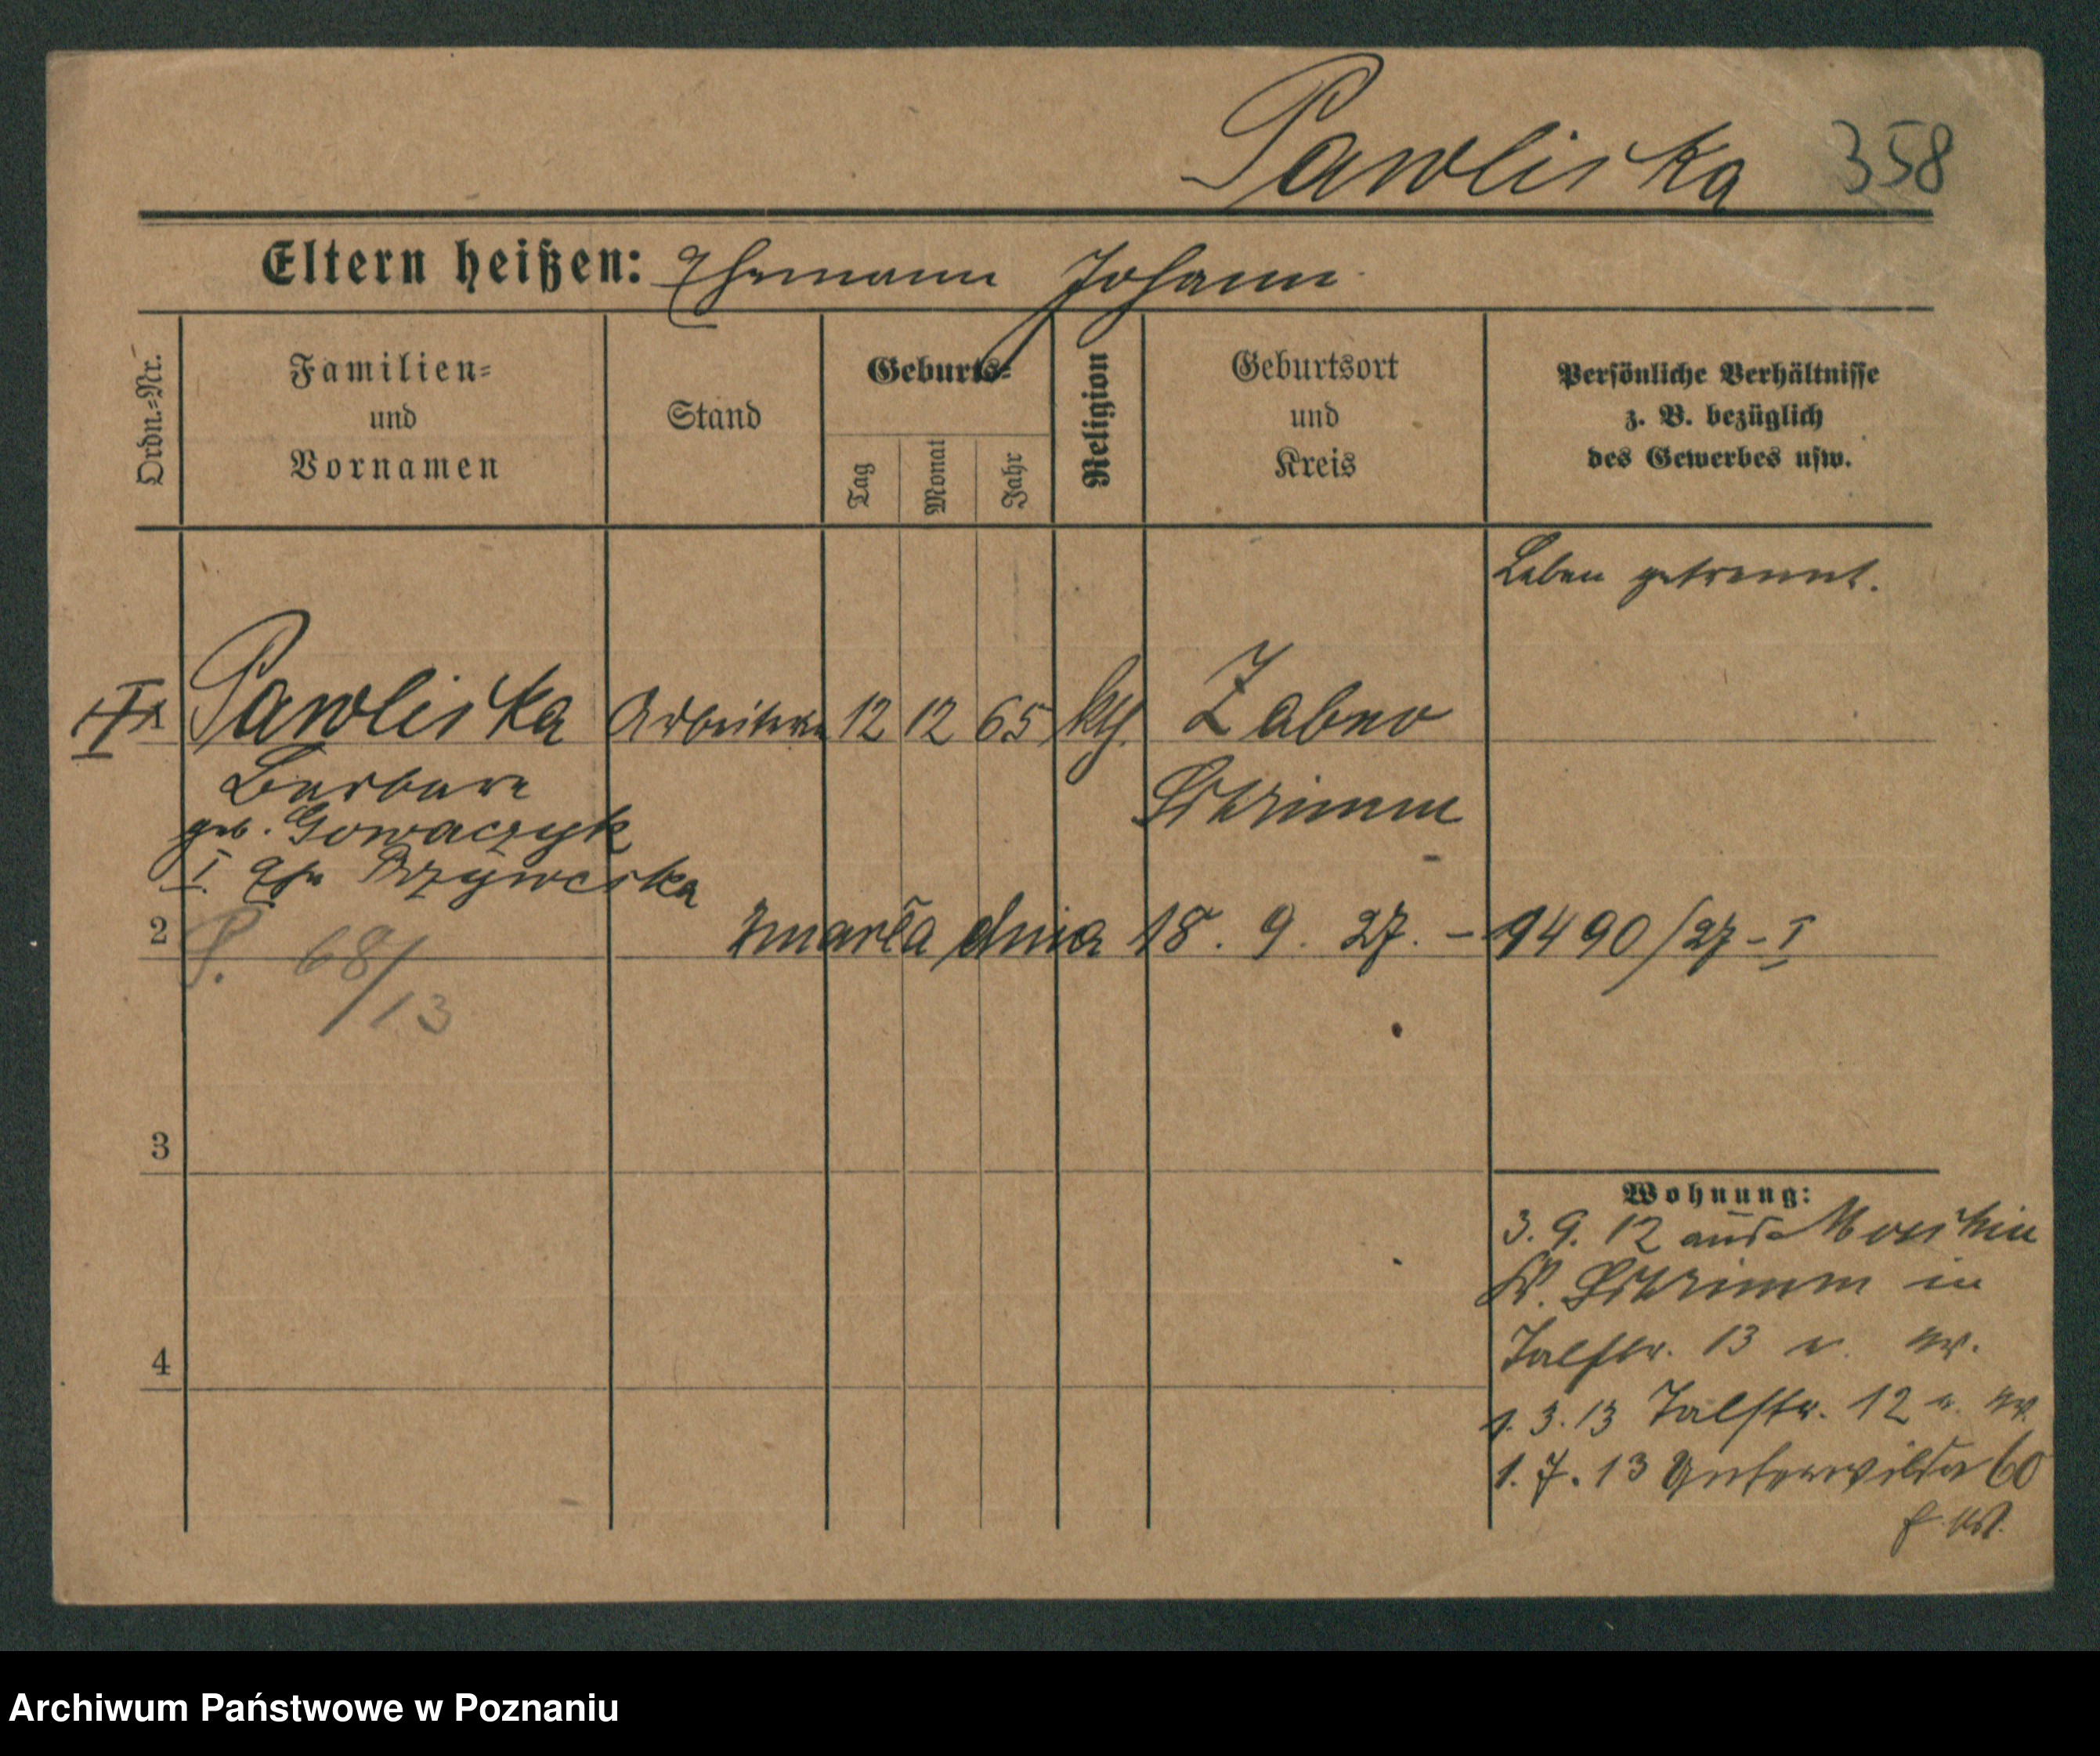 Pawliska 358
Eltern heißen: Ehemann Johann
Ordn.-Nr.
Familien-
und
Vornamen
Stand
Geburts-
Tag
Monat
Jahr
Religion
Geburtsort
und
Kreis
Persönliche Verhältnisse
z. B. bezüglich
des Gewerbes usw.
Leben getrennt.
Pawliska Arbeiterin 12 12 65 kth. Zabno
Barbara Schrimm
geb. Gowaczyk
I. Ehe
2 zmarła dnia 18. 9. 27. - 9490/27-I
P. 68/13
3
4
Wohnung:
3. 9. 12 aus Moschin
Kr. Schrimm in
Talstr. 13
1. 3. 13 Talstr. 12
1. 7. 13 Unterwilda 60
Archiwum Państwowe w Poznaniu